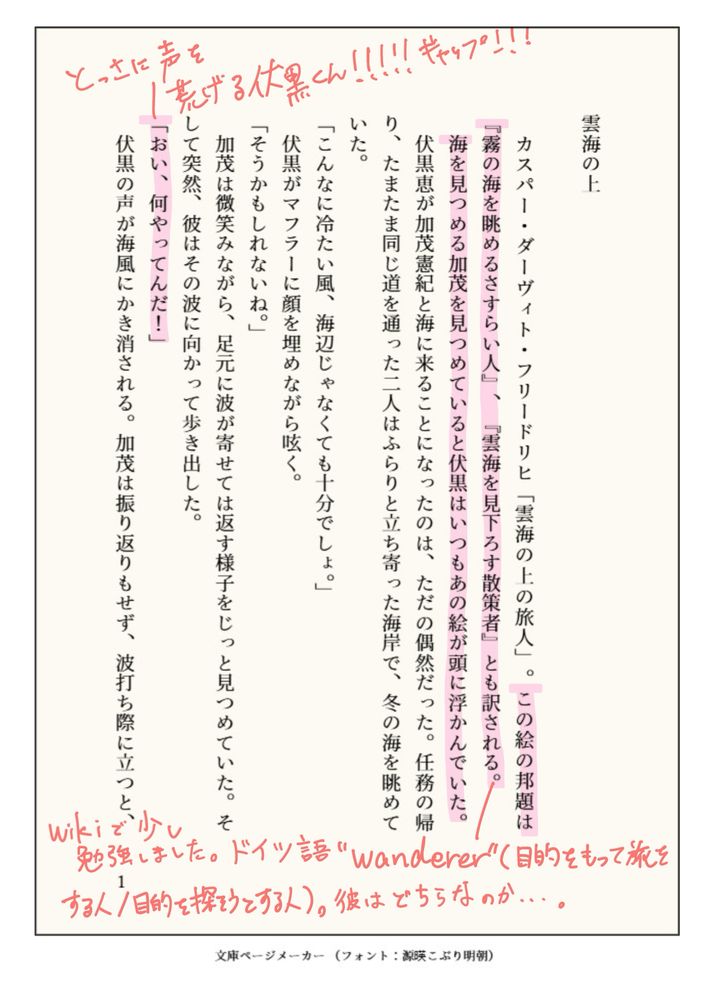 とっさに声を
荒げる伏黒くん!!!!! ギャップ!!!
雲海の上
カスパー・ダーヴィト・フリードリヒ「雲海の上の旅人」。この絵の邦題は
『霧の海を眺めるさすらい人』、『雲海を見下ろす散策者』とも訳される。
海を見つめる加茂を見つめていると伏黒はいつもあの絵が頭に浮かんでいた。
伏黒恵が加茂憲紀と海に来ることになったのは、ただの偶然だった。任務の帰
り、たまたま同じ道を通った二人はふらりと立ち寄った海岸で、冬の海を眺めて
いた。
「こんなに冷たい風、海辺じゃなくても十分でしょ。」
伏黒がマフラーに顔を埋めながら呟く。
「そうかもしれないね。」
加茂は微笑みながら、足元に波が寄せては返す様子をじっと見つめていた。そ
して突然、彼はその波に向かって歩き出した。
「おい、何やってんだ！」
伏黒の声が海風にかき消される。加茂は振り返りもせず、波打ち際に立つと、
wikiで少し
勉強しました。ドイツ語"wanderer"(目的をもって旅を
する人/目的を探そうとする人)。彼はどちらなのか...。
1
文庫ページメーカー（フォント：源暎こぶり明朝）